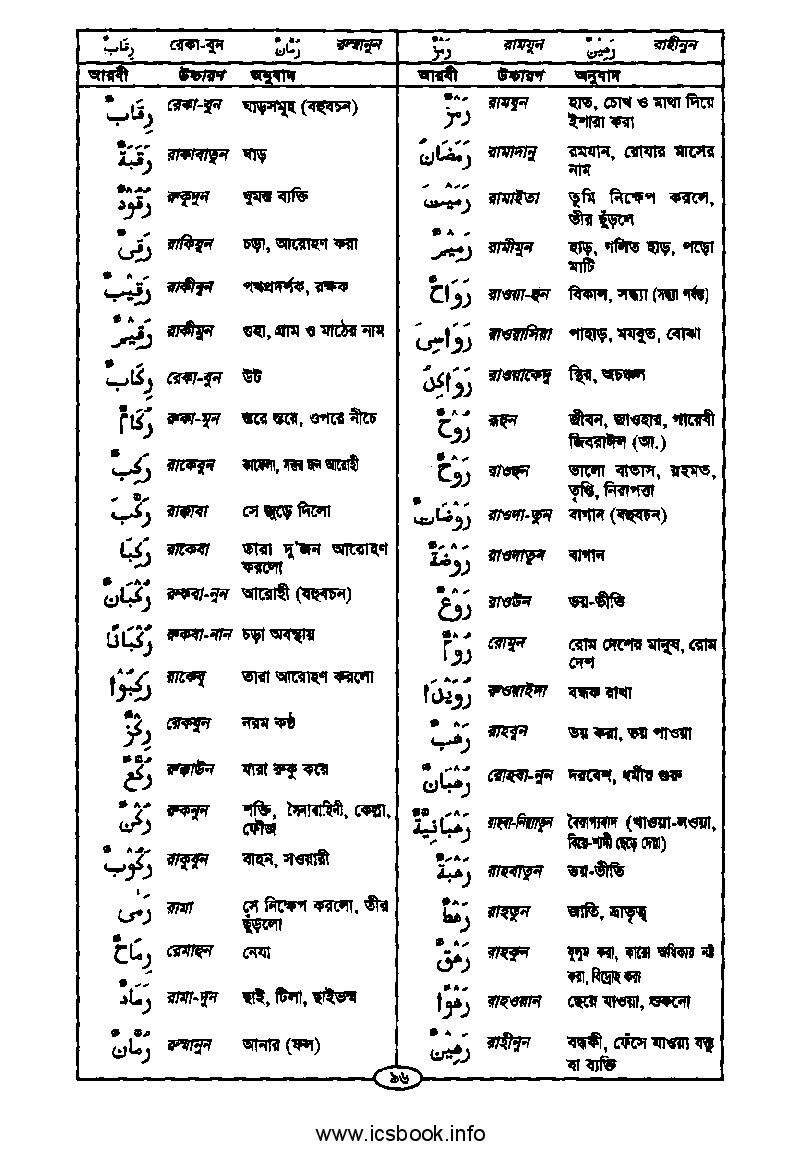 رِقَابٌ রেকা-বুন رُمَّانٌ রুম্মানুন
আরবী উচ্চারণ অনুবাদ
رِقَابٌ রেকা-বুন ঘাড়সমূহ (বহুবচন)
رَقَبَةٌ রাকাবাতুন ঘাড়
رُقُوْدٌ রুকূদুন ঘুমন্ত ব্যক্তি
رَقِىٌّ রাকিয়ুন চড়া, আরোহণ করা
رَقِيْبٌ রাকীবুন পথপ্রদর্শক, রক্ষক
رَقِيْمٌ রাকীমুন গুহা, গ্রাম ও মাঠের নাম
رِكَابٌ রেকা-বুন উট
رُكَامٌ রুকা-মুন স্তরে স্তরে, ওপরে নীচে
رَكْبٌ রাকেবুন কাফেলা, দশজন আরোহী
رَكَّبَ রাক্কাবা সে জুড়ে দিলো
رَكِبَا রাকেবা তারা দু'জন আরোহণ
করলো
رُكْبَانٌ রুকবা-নুন আরোহী (বহুবচন)
رُكْبَانًا রুকবা-নান চড়া অবস্থায়
رَكِبُوْا রাকেবূ তারা আরোহণ করলো
رِكْزٌ রেকযুন নরম কণ্ঠ
رُكَّعٌ রুক্কাউন যারা রুকু করে
رُكْنٌ রুকনুন শক্তি, সৈন্যবাহিনী, কেল্লা,
ফৌজ
رَكُوْبٌ রাকূবুন বাহন, সওয়ারী
رَمٰى রামা সে নিক্ষেপ করলো, তীর
ছুঁড়লো
رِمَاحٌ রেমাহুন নেযা
رَمَادٌ রামা-দুন ছাই, টিলা, ছাইভস্ম
رُمَّانٌ রুম্মানুন আনার (ফল)
رَمْزٌ রামযুন رَهِيْنٌ রাহীনুন
আরবী উচ্চারণ অনুবাদ
رَمْزٌ রামযুন হাত, চোখ ও মাথা দিয়ে
ইশারা করা
رَمَضَانُ রামাদানু রমযান, রোযার মাসের
নাম
رَمَيْتَ রামাইতা তুমি নিক্ষেপ করলে,
তীর ছুঁড়লে
رَمِيْمٌ রামীমুন হাড়, গলিত হাড়, পড়ো
মাটি
رَوَاحٌ রাওয়া-হুন বিকাল, সন্ধ্যা (সন্ধ্যা পর্যন্ত)
رَوَاسِىَ রাওয়াসিয়া পাহাড়, মযবুত, বোঝা
رَوَاكِدُ রাওয়াকেদু স্থির, অচঞ্চল
رُوْحٌ রূহুন জীবন, জাওহার, গায়েবী
জিবরাঈল (আ.)
رَوْحٌ রাওহুন ভালো বাতাস, রহমত,
তৃপ্তি, নিরাপত্তা
رَوْضَاتٌ রাওদা-তুন বাগান (বহুবচন)
رَوْضَةٌ রাওদাতুন বাগান
رَوْعٌ রাওউন ভয়-ভীতি
رُوْمٌ রোমুন রোম দেশের মানুষ, রোম
দেশ
رُوَيْدًا রুওয়াইদা বন্ধক রাখা
رَهْبٌ রাহবুন ভয় করা, ভয় পাওয়া
رُهْبَانٌ রোহবা-নুন দরবেশ, ধর্মীয় গুরু
رَهْبَانِيَّةٌ রাহবা-নিয়্যাতুন বৈরাগ্যবাদ (খাওয়া-দাওয়া,
বিয়ে-শাদী ছেড়ে দেয়া)
رَهْبَةٌ রাহবাতুন ভয়-ভীতি
رَهْطٌ রাহতুন জাতি, ভ্রাতৃত্ব
رَهَقٌ রাহকুন যুলুম করা, কারো অধিকার নষ্ট
করা, বিদ্রোহ করা
رَهْوًا রাহওয়ান ছেয়ে যাওয়া, শুকনো
رَهِيْنٌ রাহীনুন বন্ধকী, ফেঁসে যাওয়া বস্তু
বা ব্যক্তি
১৬
www.icsbook.info